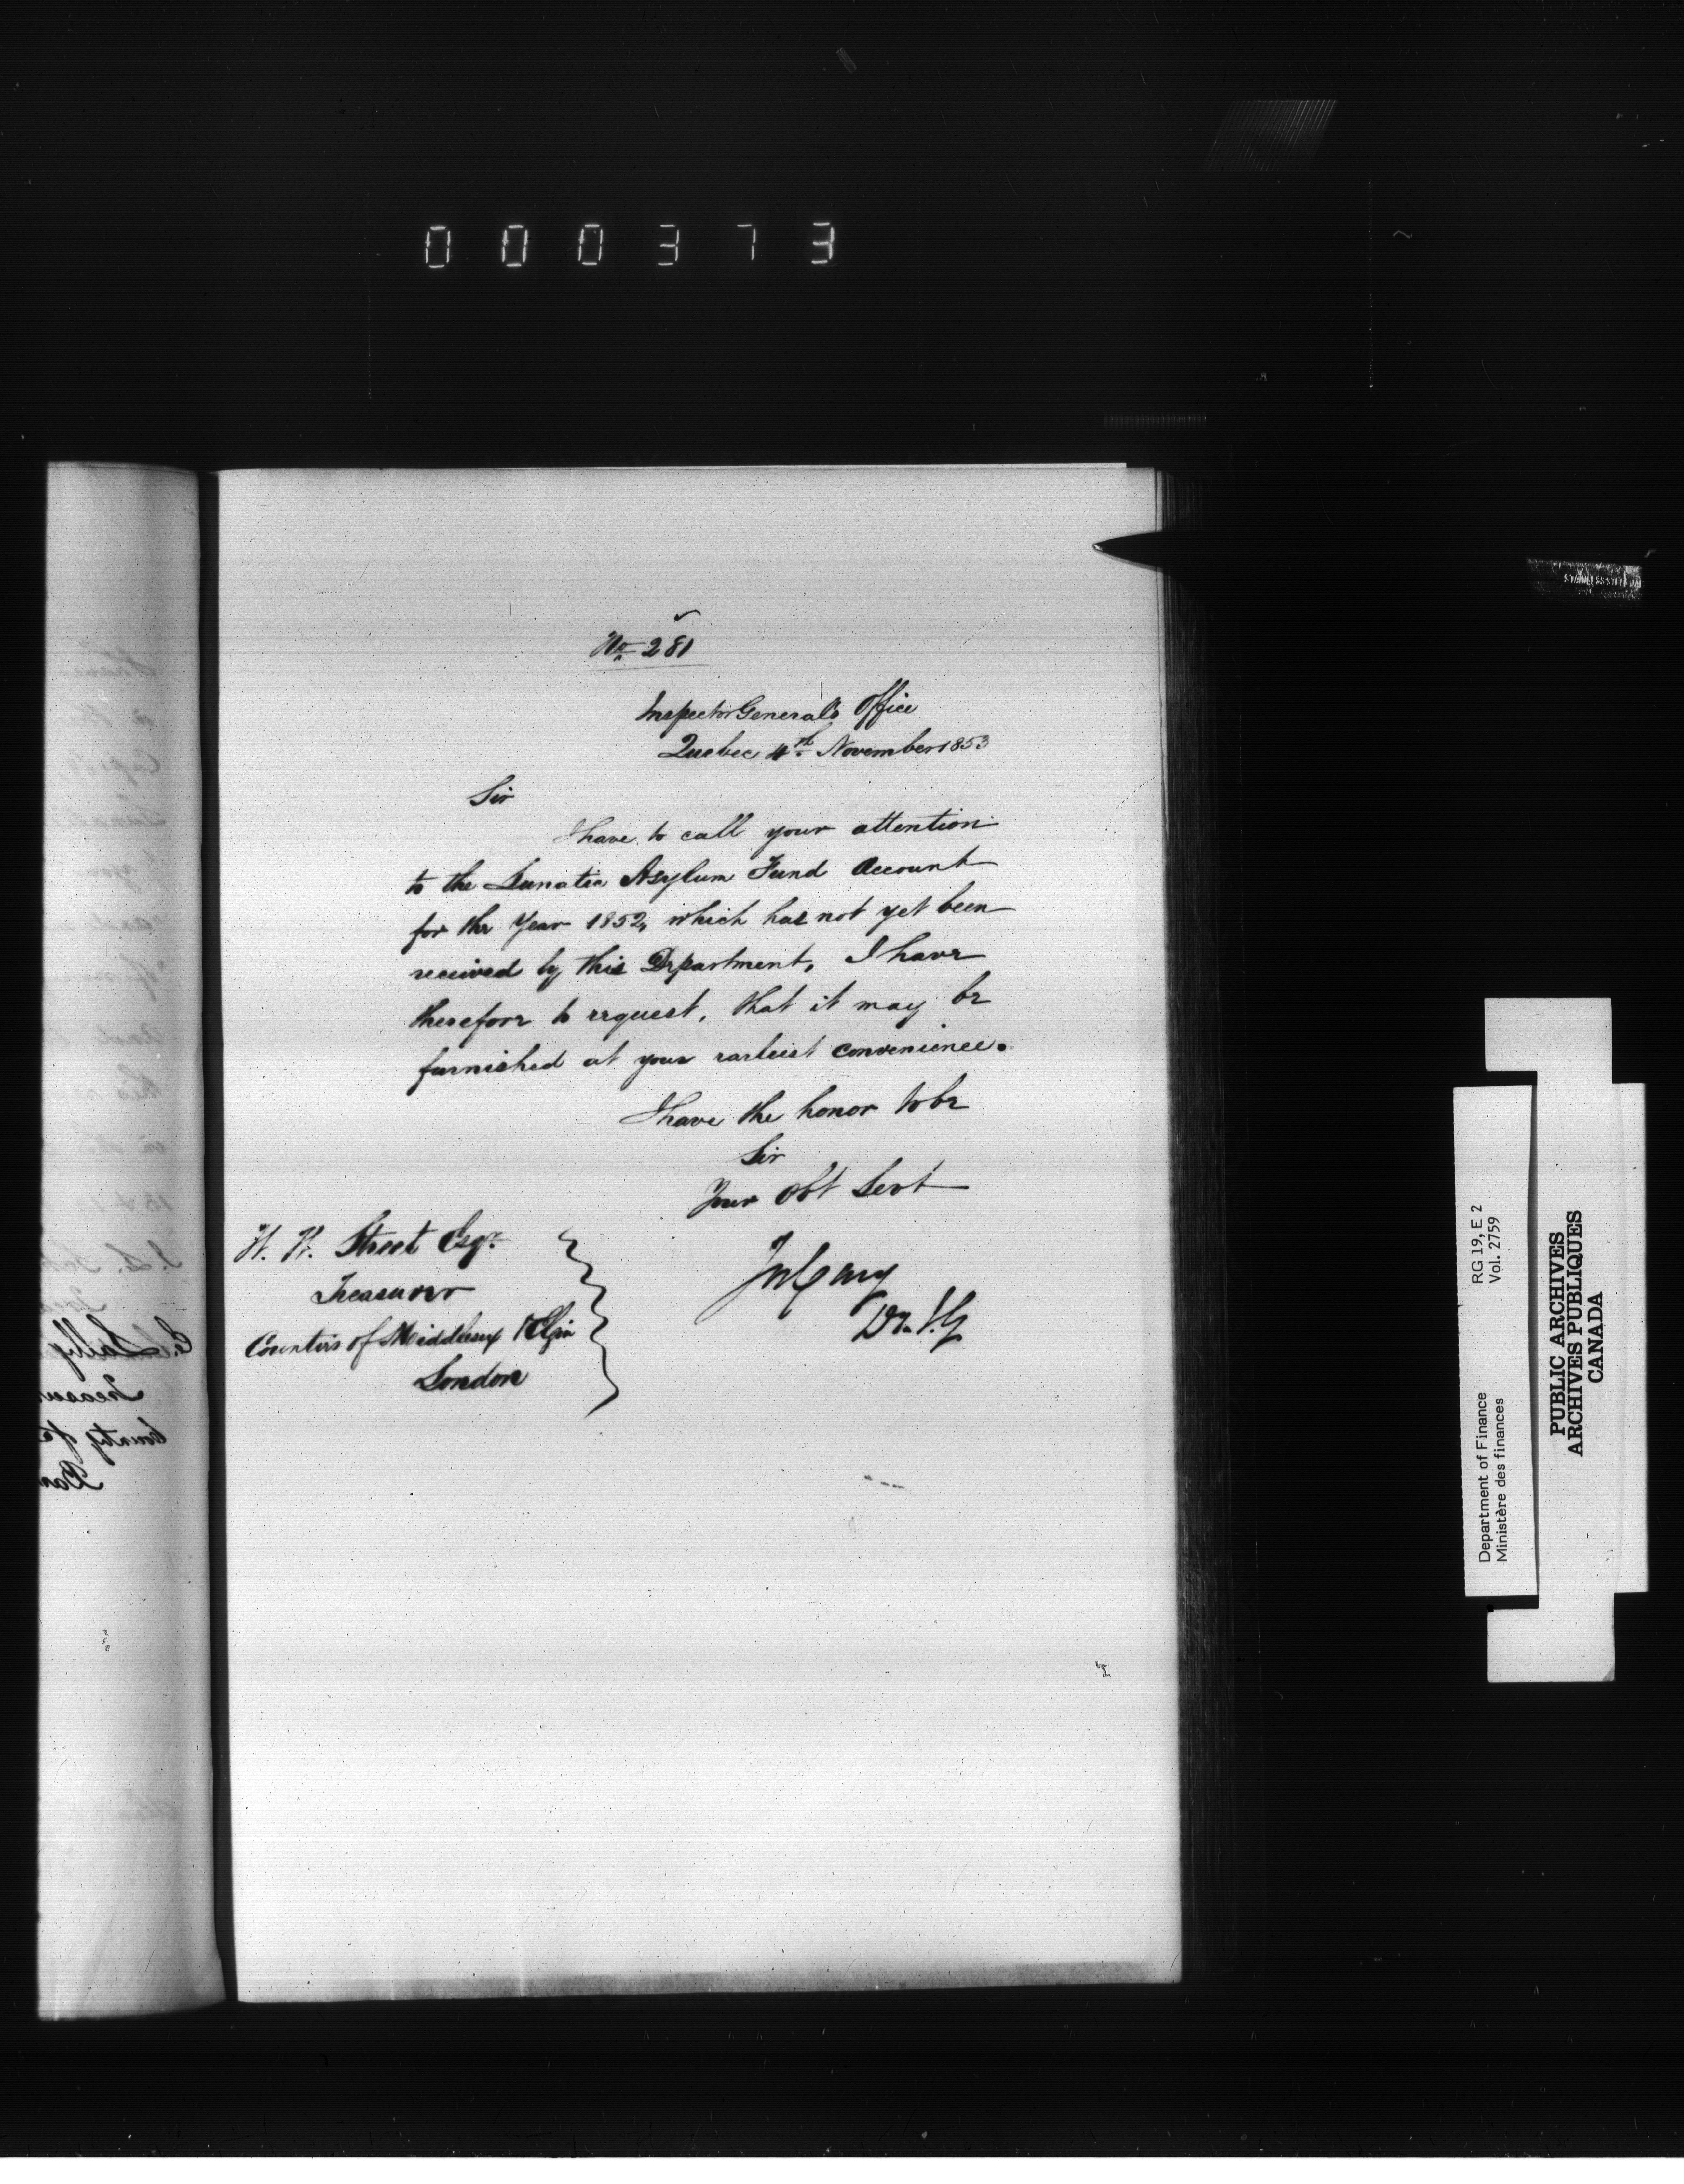 000373
No. 281
Inspector General's Office
Quebec 4th November 1853
Sir
I have to call your attention
to the Lunatic Asylum Fund Account
for the Year 1852, which has not yet been
received by this Department. I have
therefore to request, that it may be
furnished at your earliest convenience.
I have the honor to be
Sir
Your Obt Servt
Jos Cary
Dy. I. G.
Street Esqr.
Treasurer
Counties of Middlesex & Elgin
London
RG 19, E 2
Vol. 2759
Department of Finance
Ministère des finances
PUBLIC ARCHIVES
ARCHIVES PUBLIQUES
CANADA